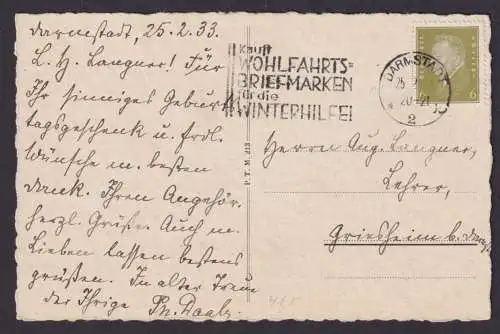 Darmstadt, 25.2.33.
L. H. Langner! Für
Ihr sinniges Geburts
tagsgeschenk u. frdl.
Wünsche m. besten
Dank. Ihren Angehör.
herzl. Grüße. Auch m.
Lieben lassen bestens
grüßen. In alter Treue
der Ihrige Ph. Daab.
Kauft
WOHLFAHRTS=
BRIEFMARKEN
für die
WINTERHILFE!
DARMSTADT
25.2
20-21
2
6
P. T. M. 213
Herrn Aug. Langner,
Lehrer,
Griesheim b. Drmst.